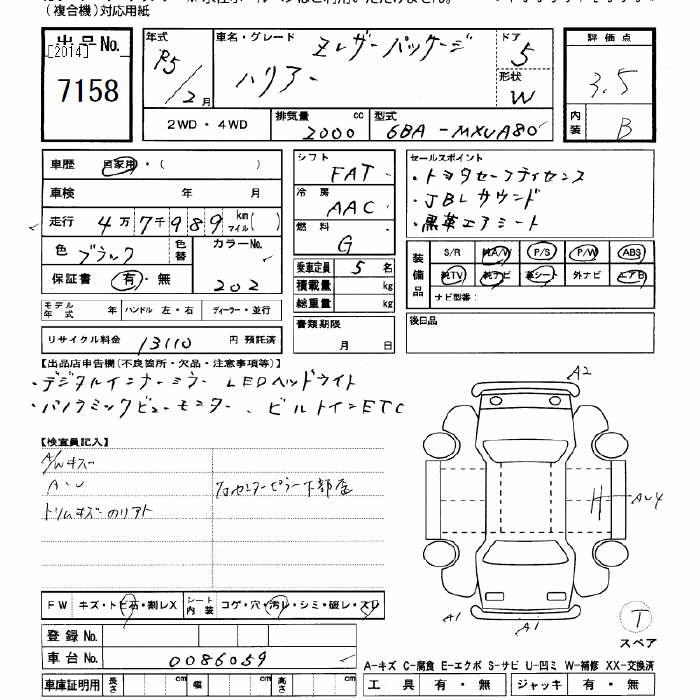 (複合機)対応用紙
出品No.
[2014]
7158
年式 R5/2月
車名・グレード Zレザーパッケージ
ハリアー
ドア 5
形状 W
2WD・4WD
排気量 2000 cc
型式 6BA-MXUA80
評価点 3.5
内装 B
車歴 自家用・( )
車検 年 月
走行 4万7千989 km マイル( )
色 ブラック
色替
カラーNo. 202
保証書 有・無
モデル年式 年 ハンドル 左・右 ディーラー・並行
リサイクル料金 13110 円 預託済
シフト FAT
冷房 AAC
燃料 G
乗車定員 5名
積載量 kg
総重量 kg
書類期限
月 日
セールスポイント
・トヨタセーフティセンス
・JBLサウンド
・黒革エアシート
装備品
S/R 純A/W P/S P/W ABS
純TV 純ナビ 革シート 外ナビ エアB
ナビ型番:
後日品
【出品店申告欄(不良箇所・欠品・注意事項等)】
・デジタルインナーミラー LEDヘッドライト
・パノラミックビューモニター、ビルトインETC
【検査員記入】
A/Wキズ
A・U
トリムキズ
センターピラー下部
A2
AU4
A1
A1
T
スペア
FW キズ・トビ石・割レX
シート内装 コゲ・穴・汚レ・シミ・破レ・スレ
登録No.
車台No. 0086059
車庫証明用 長さ cm 幅 cm 高さ cm
A-キズ C-腐食 E-エクボ S-サビ U-凹ミ W-補修 XX-交換済
工具 有・無 ジャッキ 有・無